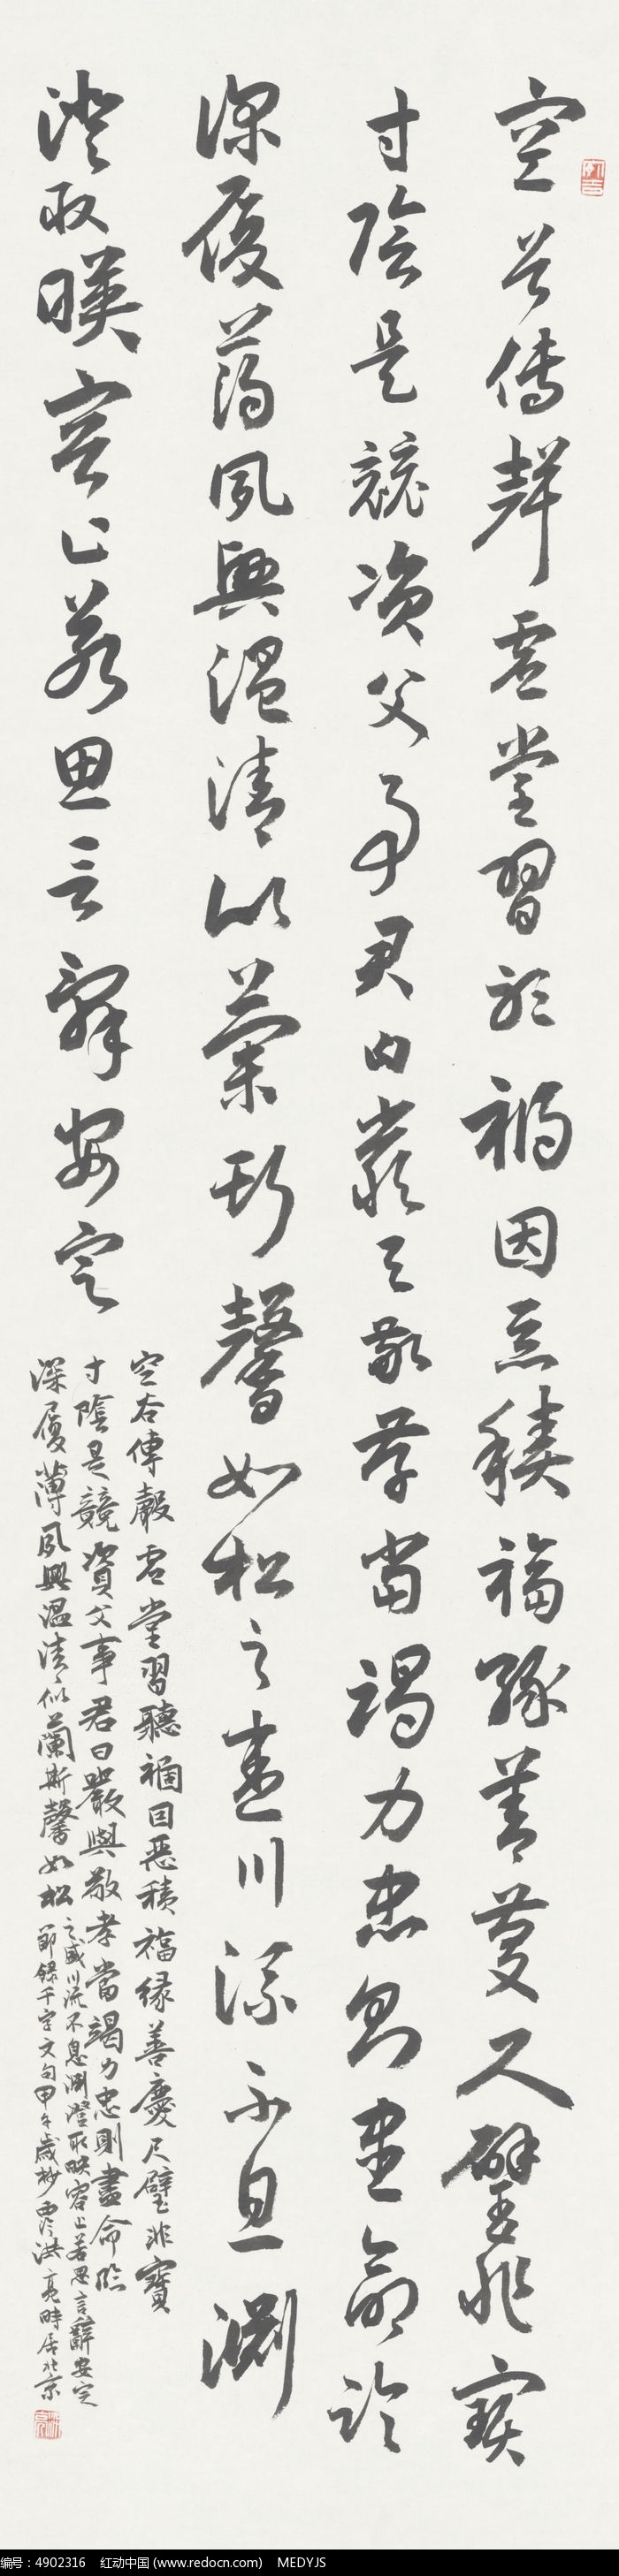 空谷傳聲虛堂習聽禍因惡積福緣善慶尺璧非寶
寸陰是競資父事君曰嚴與敬孝當竭力忠則盡命臨
深履薄夙興溫凊似蘭斯馨如松之盛川流不息淵
澄取暎容止若思言辭安定
空谷傳聲虛堂習聽禍因惡積福緣善慶尺璧非寶
寸陰是競資父事君曰嚴與敬孝當竭力忠則盡命臨
深履薄夙興溫清似蘭斯馨如松
之盛川流不息淵澄取映容止若思言辭安定
節錄千字文句甲午歲杪賈洪亮時居北京
编号：4902316 红动中国 (www.redocn.com) MEDYJS